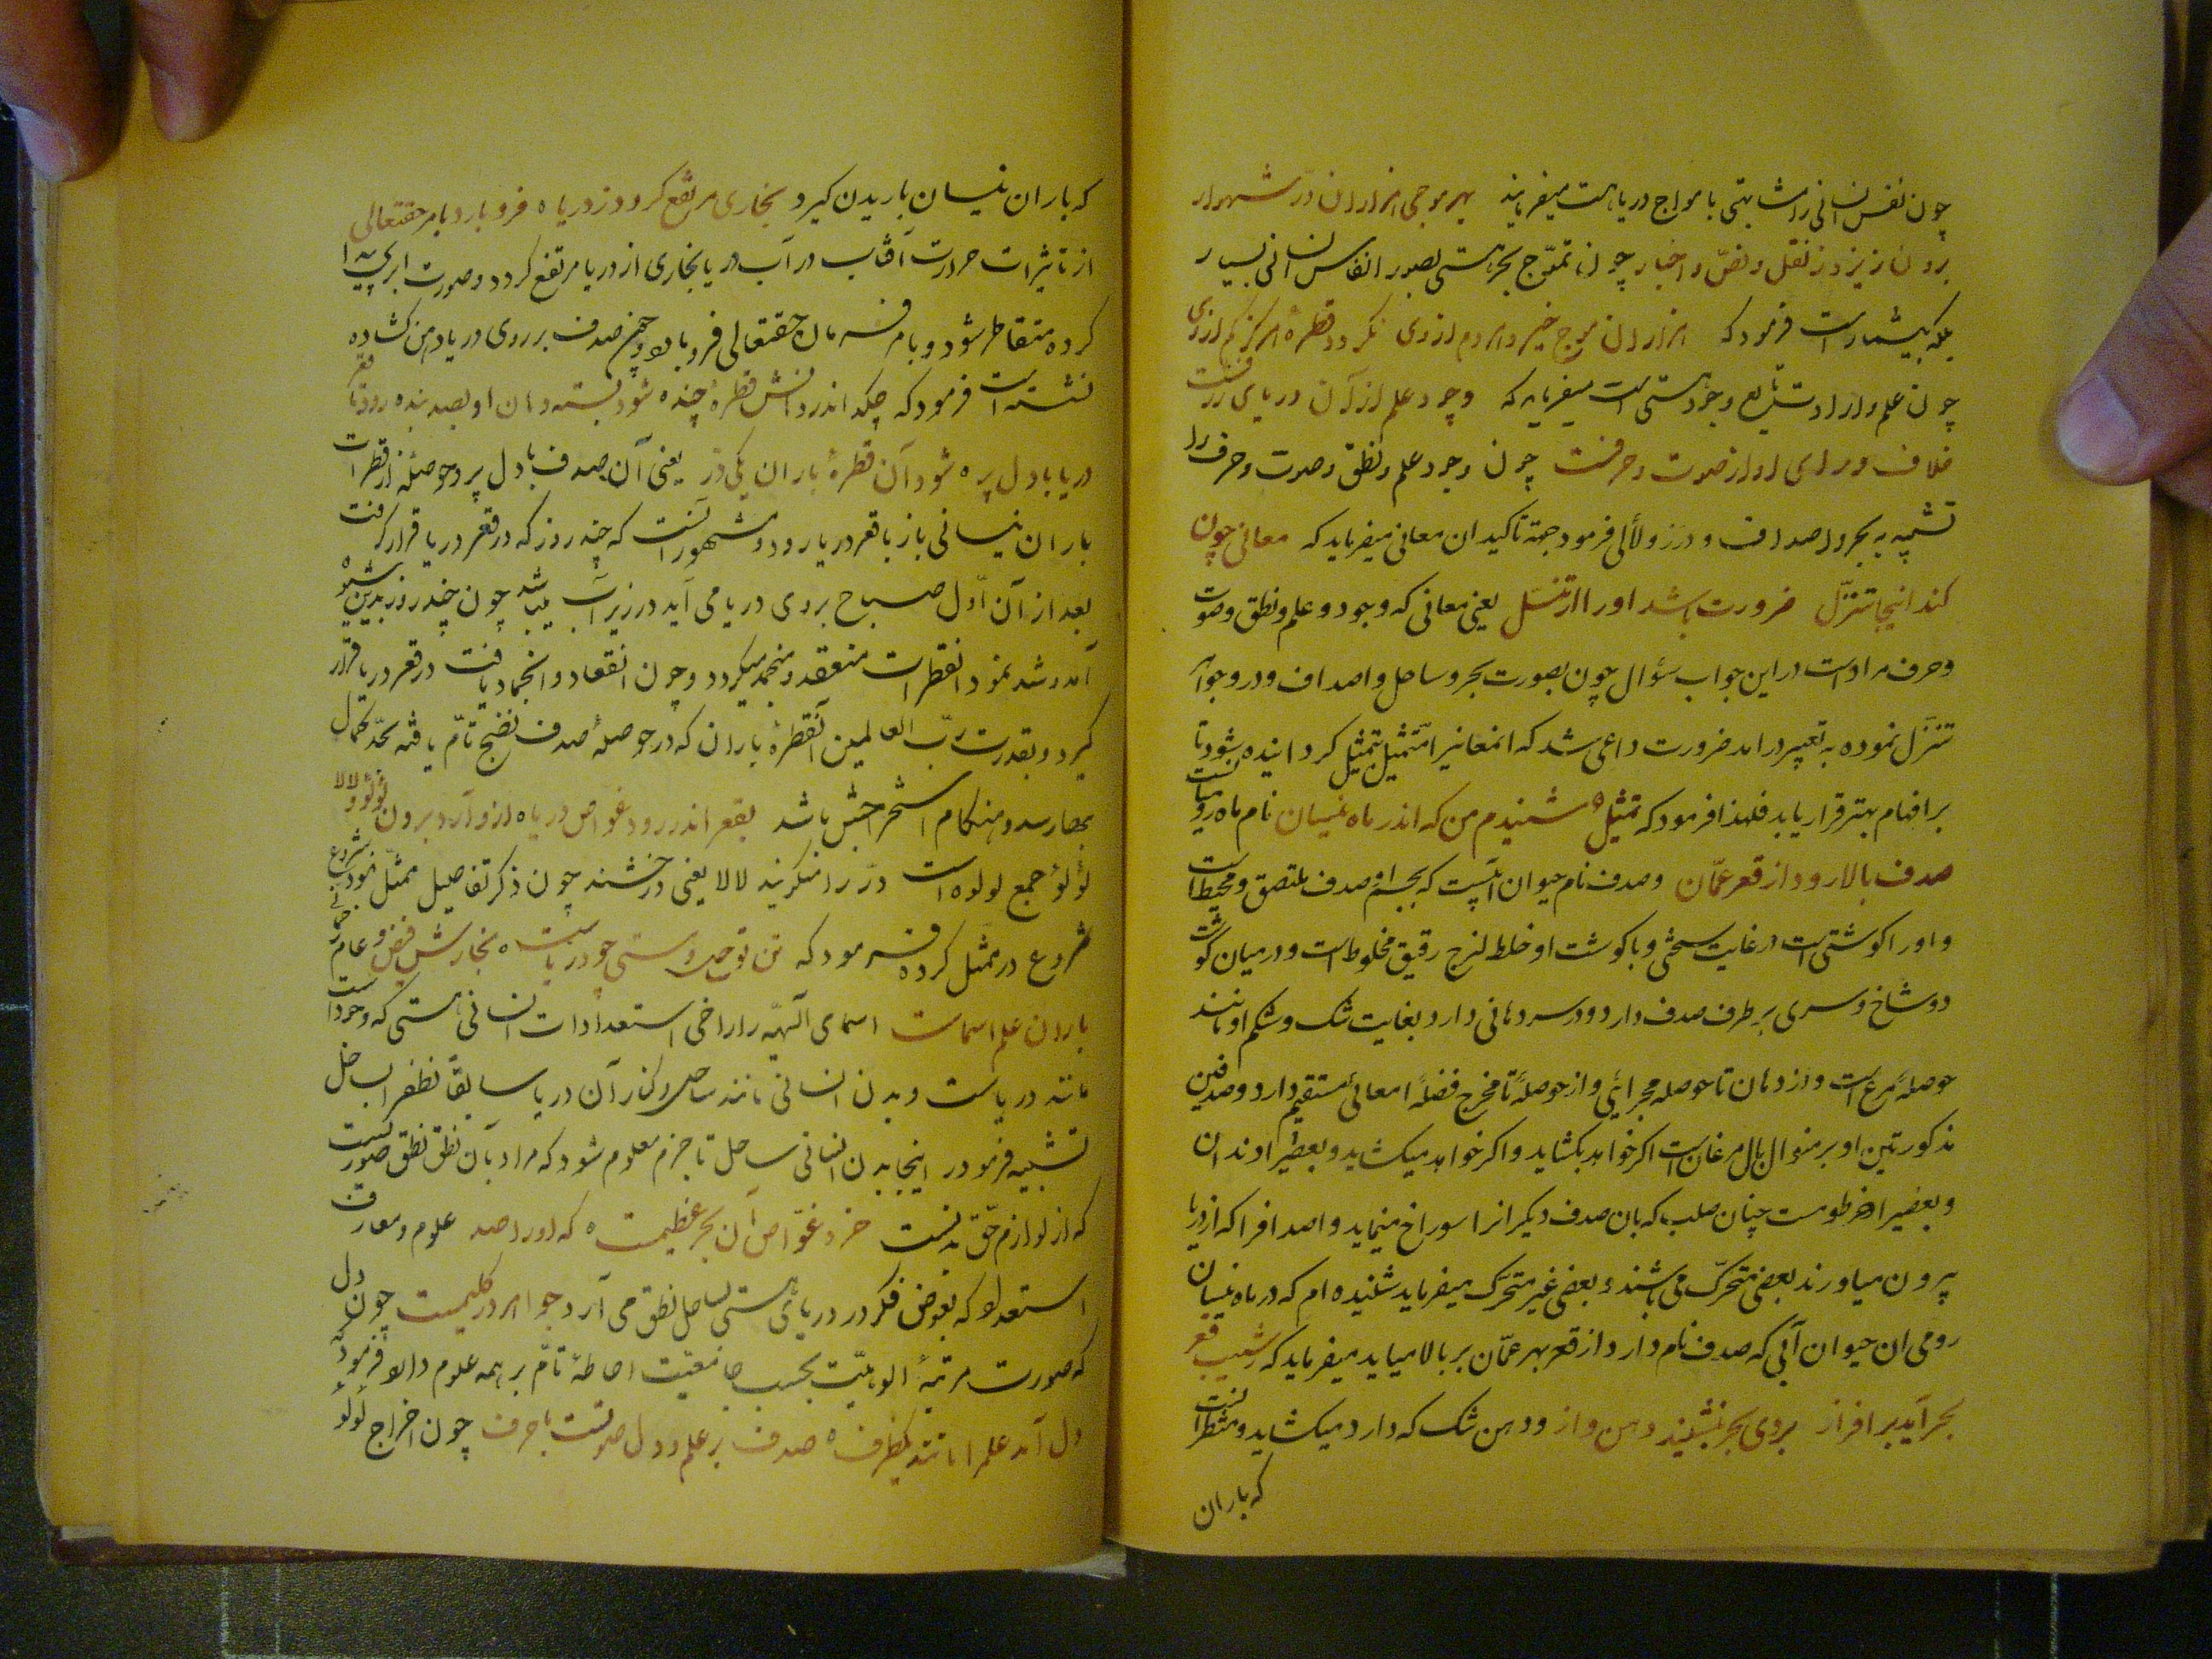 چون نفس انسانی را مشابهتی با مواج دریا هست میفرمایند بهر موجی هزاران درّ شهوار
برون ریزد ز نقل و نصّ و اخبار چون تموّج بحر هستی بصور انفاس انسانی بسیار
بلکه بیشمارست فرمود که هزاران موج خیزد هر دم از وی نگردد قطرهٔ هرگز کم از وی
چون علم و ارادت تابع وجود هستی است میفرماید که وجود علم از آن دریای ژرفست
غلاف در او از صوت و حرفست چون وجود علم و نطق و صوت و حرف را
تشبیه به بحر و اصداف و درر و لألی فرمود جهة تاکید ان معانی میفرماید که معانی چون
کند اینجا تنزّل ضرورت باشد او را از تمثّل یعنی معانی که وجود و علم و نطق و صوت
و حرف مرادست در این جواب سؤال چون بصورت بحر و ساحل و اصداف و در و جواهر
تنزّل نموده به تعبیر درامد ضرورت داعی شد که انمعانیرا متمثّل بتمثیل کردانیده شود تا
بر افهام بهتر قرار یابد فلهذا فرمود که تمثیل شنیدم من که اندر ماه نیسان نام ماه رومیانست
صدف بالا رود از قعر عمّان و صدف نام حیوان آبیست که بجسم او صدف ملتصق و محیط است
و او را کوشتی است در غایت سختی و با کوشت او خلط لزج رقیق مخلوط است و در میان گوشت
دو شاخ و سری بر طرف صدف دارد و در سر دهانی دارد بغایت تنک و شکم او مانند
حوصلهٔ مرغ است و از دهان تا حوصله مجرائی و از حوصله تا مخرج فضله امعائی مستقیم دارد و صدفین
مذکورتین او بر منوال بال مرغان است اکر خواهد بکشاید و اکر خواهد میکشاید و بعضی را دندان
و بعضیرا خرطومست چنان صلب که بان صدف دیکر انرا سوراخ مینماید و اصدافرا که از دریا
بیرون میاورند بعضی متحرّک می باشند و بعضی غیر متحرّک میفرماید شنیده ام که در ماه نیسان
رومی ان حیوان آبی که صدف نام دارد از قعر بهر عمّان بر بالا میاید میفرماید که ز شیب قعر
بحر آید بر افراز بروی بحر بنشیند دهن واز و دهن تنک که دارد میکشاید و منتظر است
که باران
که باران نیسان باریدن کیرد بخاری مرتفع کردد ز دریا ه فرو بارد بامر حقتعالی
از تاثیرات حرارت آفتاب در آب دریا بخاری از دریا مرتفع کردد و صورت ابر پیدا
کرده متقاطر شود و بامر فرمان حقتعالی فرو بارد و چون صدف بر روی دریا دهن کشاده
نشسته است فرمود که چکد اندر دهانش قطرهٔ چند ه شود بسته دهان او بصد بند ه رود تا قعر
دریا با دل پر ه شود آن قطرهٔ باران یکی درّ یعنی آن صدف با دل پر و حوصله از قطرات
باران نیسانی باز با قعر دریا رود و مشهور آنست که چند روز که در قعر دریا قرار کرفت
بعد از آن اوّل صباح بروی دریا می آید در زیر آب میباشد چون چند روز بدین شیوه
آمد و شد نمود انقطرات منعقد و منجمد میکردد و چون انعقاد و انجماد یافت در قعر دریا قرار
کیرد و بقدرت ربّ العالمین آنقطرهٔ باران که در حوصلهٔ صدف نضج تامّ یافته بحدّ کمال
بحصار رسد و هنکام استخراجش باشد بقعر اندر رود غوّاص دریا ه از و آرد برون لؤلؤ لالا
لؤلؤ جمع لولوه است و درّ را منکر یند لالا یعنی درخشنده چون ذکر تفاصیل ممثّل نمود شروع
شروع در ممثل کرده فرمود که تن تو ساحل و هستی چو دریاست ه بخارش فیض و
باران علم اسماست اسمای آلهیّه را راضی استعدادات انسانی هستی که وجود است
مانند دریاست و بدن انسانی مانند ساحل و کنار آن دریا سابقاً نطق را بساحل
تشبیه فرمود در اینجا بدن انسانی ساحل تا جزم معلوم شود که مراد بآن نطق نطق صوریست
که از لوازم بدنست خرد غوّاص آن بحر عظیمست ه که او را صد علوم و معارف
استعداد که بغوض فکر در دریای هستی بساحل نطق می آرد جواهر در کلیمست چون دل
که صورت مرتبهٔ الوهیّت بحسب جامعیّت احاطهٔ تامّ بر همه علوم دارد فرمود که
دل آمد علم را مانند یکظرف ه صدف بر علم دل صوتست با حرف چون اخراج لؤلؤ